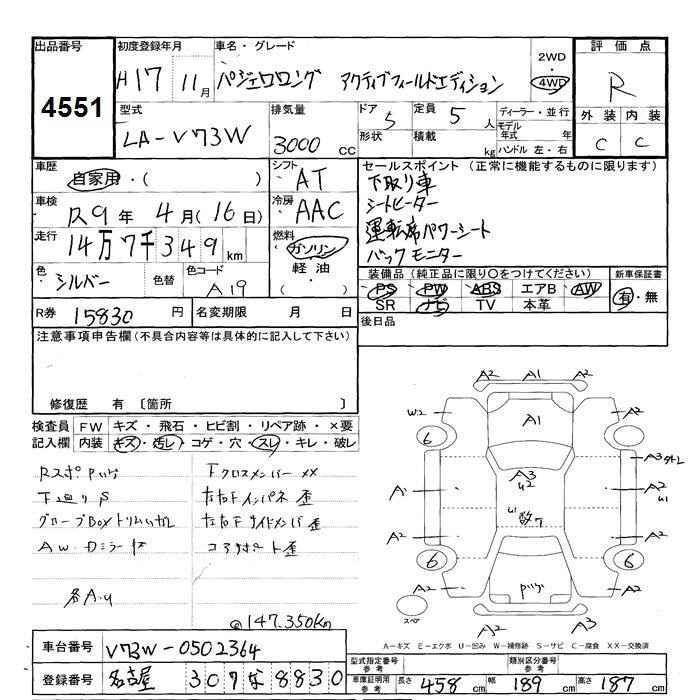 出品番号
4551
初度登録年月
H17年11月
車名・グレード
パジェロロング アクティブフィールドエディション
2WD・4WD
評価点
R
型式
LA-V73W
排気量
3000cc
ドア形状
5
定員
5人
積載
kg
ディーラー・並行
モデル年式 年
ハンドル 左・右
外装 内装
C C
車歴
自家用・( )
シフト
AT
セールスポイント (正常に機能するものに限ります)
下取り車
シートヒーター
運転席パワーシート
バックモニター
車検
R9年 4月(16日)
冷房
AAC
走行
14万7千349km
燃料
ガソリン
軽油
・( )
色
シルバー
色替
色コード
A19
装備品(純正品に限り○をつけてください)
PS PW ABS エアB AW
SR ナビ TV 本革
新車保証書
有・無
R券 15830円
名変期限 月 日
後日品
注意事項申告欄(不具合内容等は具体的に記入して下さい)
修復歴 有〔箇所 〕
検査員記入欄
FW キズ・飛石・ヒビ割・リペア跡・×要
内装 キズ・汚レ・コゲ・穴・スレ・キレ・破レ
下廻りS
グローブBOXトリム
AW・Dミラーキズ
各A.U
Fクロスメンバー XX
左右Fインパネ 歪
左右Fサイドメンバ 歪
コアサポート歪
@147.350km
A2 A1 A2
W2 A1
6
A3
U2
A3
A1
A2
U1
U1
A2 A2
6 6
A2 A2
スペア
A2 A3
A-キズ E-エクボ U-凹み W-補修跡 S-サビ C-腐食 XX-交換済
車台番号
V73W-0502364
登録番号
名古屋 307な8830
型式指定番号
参考
類別区分番号
参考
車庫証明用
参考
長さ 458cm 幅 189cm 高さ 187cm